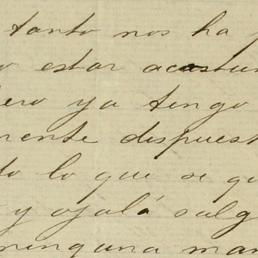 tanto nos ha
o estar acostum
ero ya tengo
mente dispuest
do lo que se qu
y ojalá salg
ninguna man